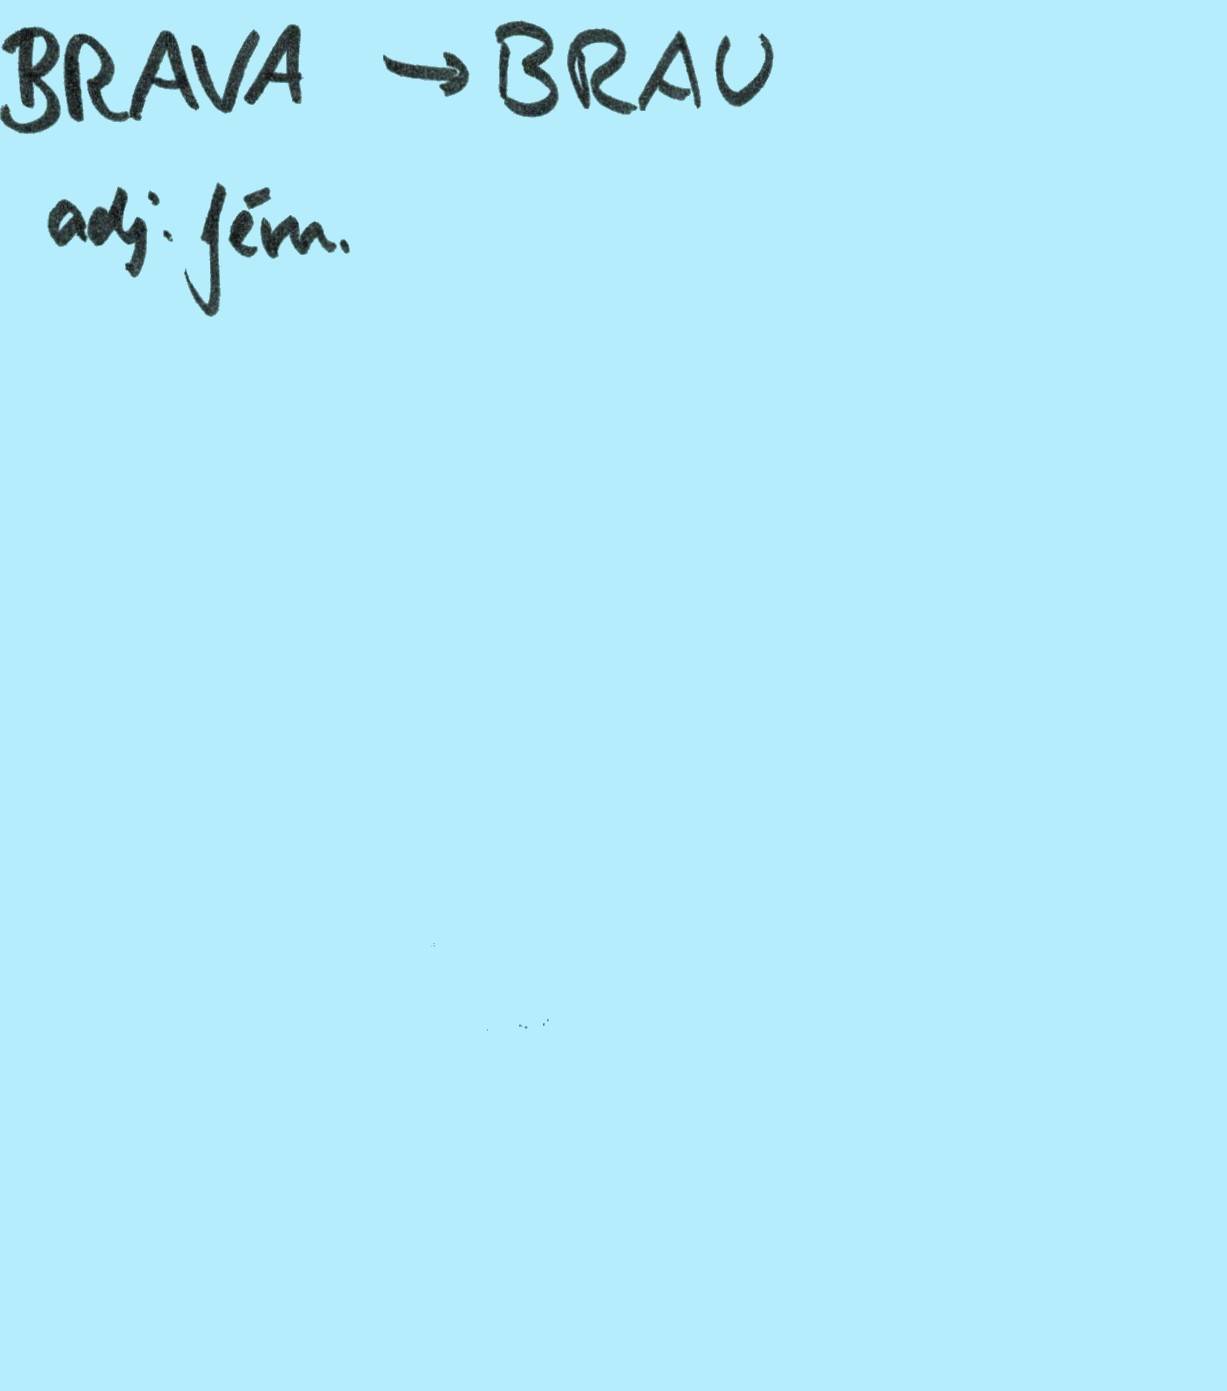 BRAVA → BRAU
adj. fém.